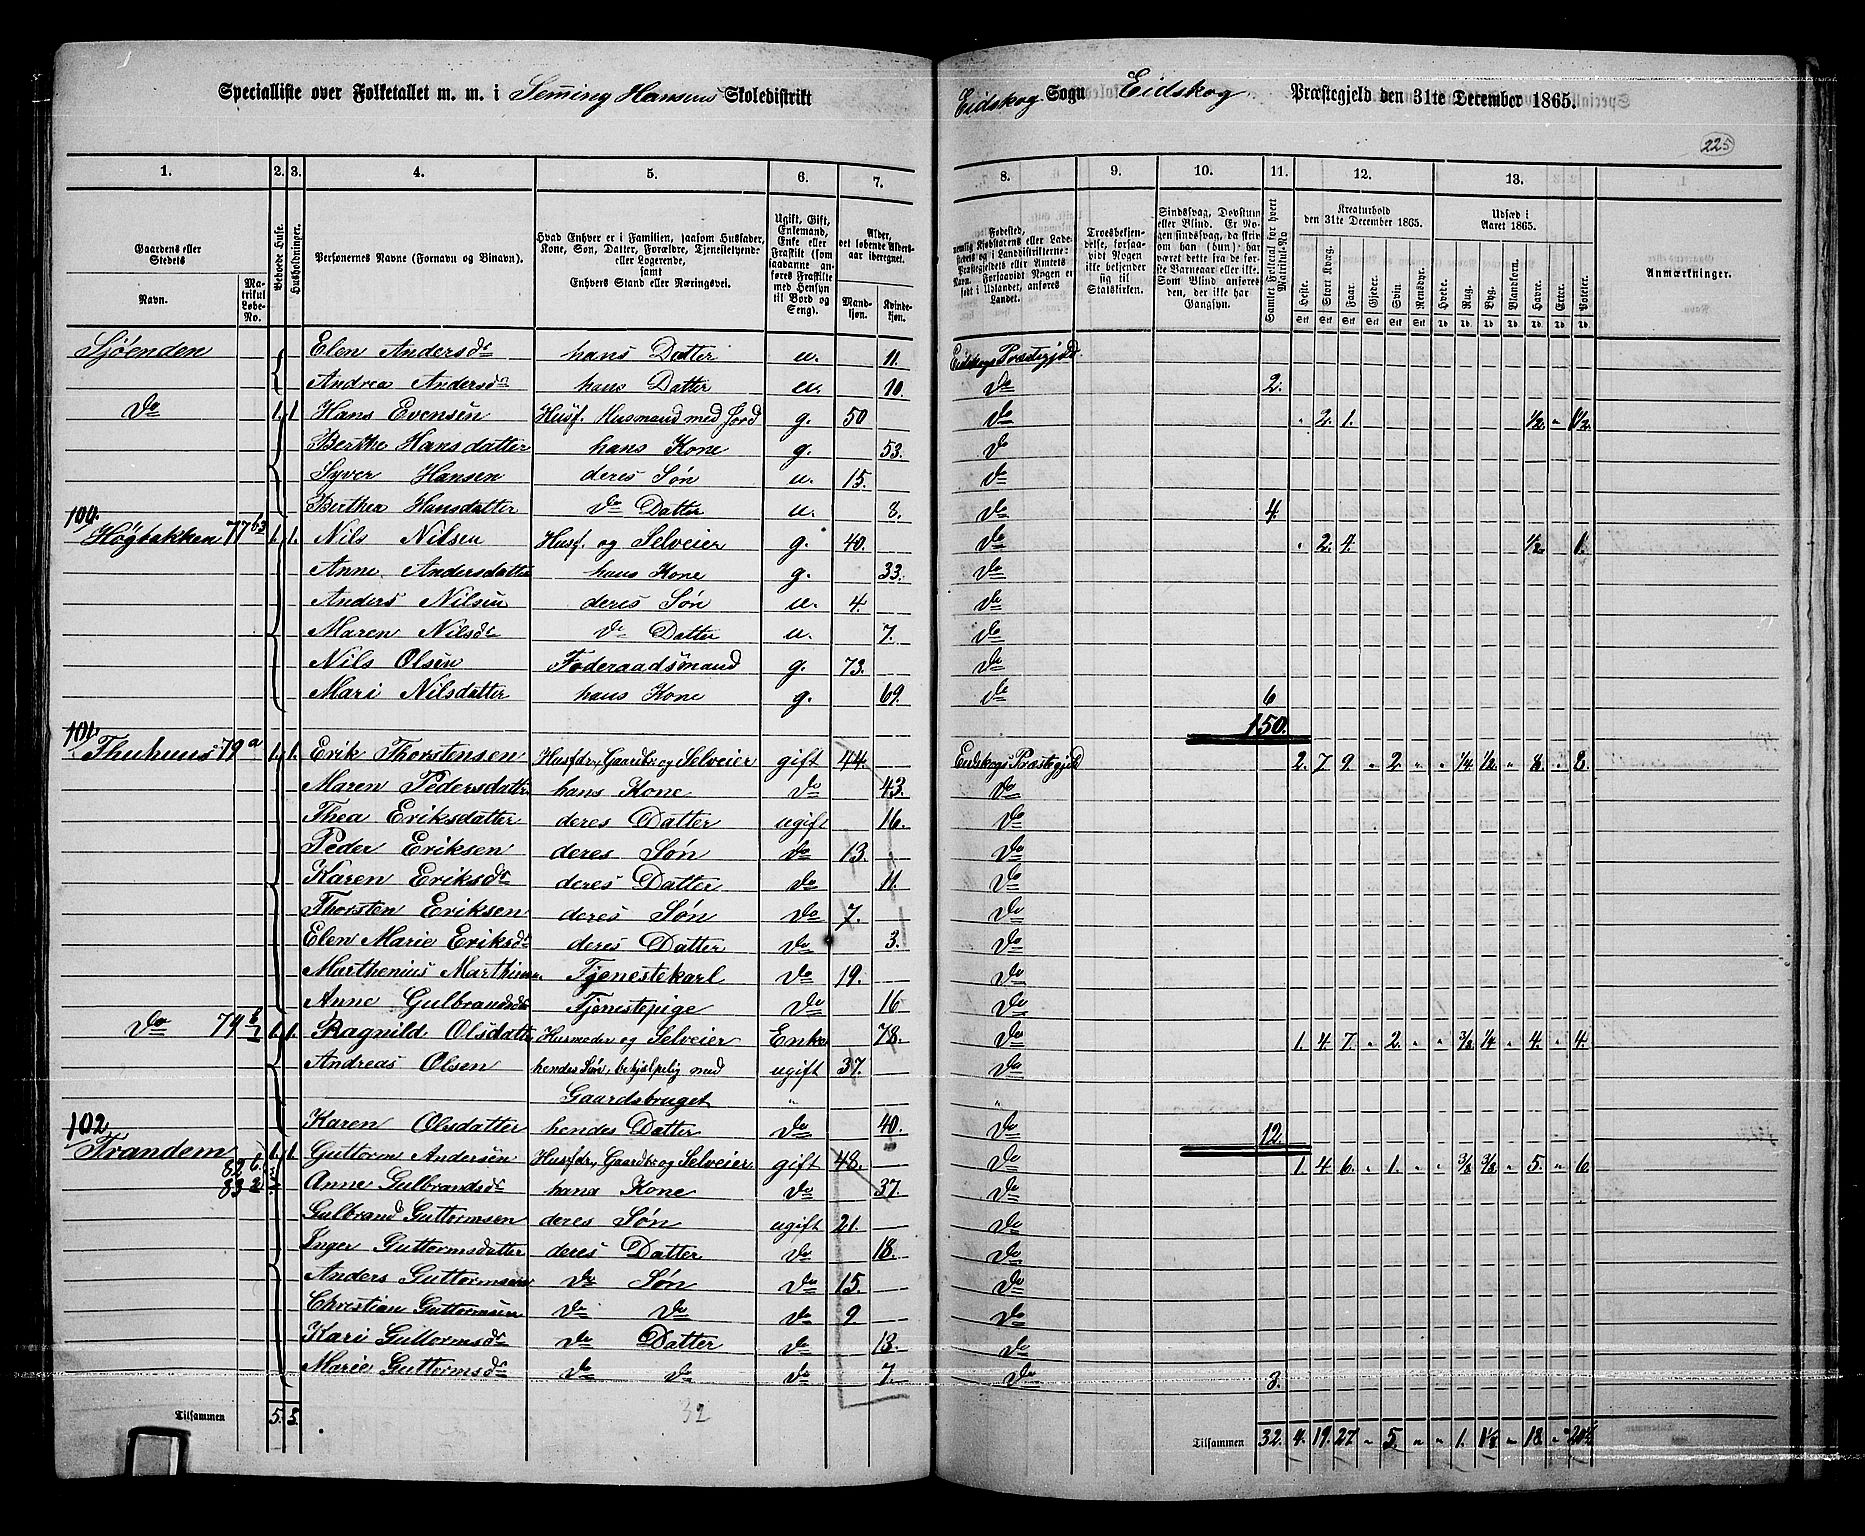 Specialliste over Folketallet m. m. i Semming Hansens Skoledistrikt
Eidskog Sogn Eidskog Præstegjeld den 31te December 1865.
225
1. 2. 3. 4. 5. 6. 7. 8. 9. 10. 11. 12. 13.
Gaardens eller Stedets
Navn.
Matrikul Løbe-No.
Beboede Huse.
Husholdninger.
Personernes Navne (Fornavn og Binavn).
Hvad Enhver er i Familien, saasom Husfader, Kone, Søn, Datter, Forældre, Tjenestetyende eller Logerende, samt Enhvers Stand eller Næringsvei.
Ugift, Gift, Enkemand, Enke eller Fraskilt (som saadanne anføres Fraskilte med Hensyn til Bord og Seng).
Alder, det løbende Aldersaar iberegnet.
Mandkjøn. Kvindekjøn.
Troesbekjendelse, forsaavidt Nogen ikke bekjender sig til Statskirken.
Samlet Folketal for hvert Matrikul-No
Kreaturhold den 31te December 1865.
Udsæd i Aaret 1865.
Heste. Stort Kvæg. Faar. Gjeder. Svin. Rensdyr. Hvede. Rug. Byg. Blandkorn. Havre. Erter. Poteter.
Anmærkninger.
Sjøenden Elen Andersdr hans Datter u. 11. Eidskogs Præstegjeld
Andrea Andersdr hans Datter u. 10. do 2.
do 1. 1. Hans Evensen Husf. Husmand med Jord g. 50 do " 2. 1. 1/2. " 1 1/2.
Berthe Hansdatter hans Kone g. 53. do
Syver Hansen deres Søn u. 15. do
Berthea Hansdatter do Datter u. 8. do 4.
100.
Høgbakken 77 b3 1. 1. Nils Nilsen Husf. og Selveier g. 40. do " 2. 4. 1/2. 1.
Anne Andersdatter hans Kone g. 33. do
Anders Nilsen deres Søn u. 4. do
Maren Nilsdr do Datter u. 7. do
Nils Olsen Føderaadsmand g. 73. do
Mari Nilsdatter hans Kone g. 69. do 6
150.
101.
Thuhuus 79 a 1. 1. Erik Thorstensen Husfdr., Gaardbr. og Selveier gift 44. Eidskogs Præstegjeld 2. 7 9. " 2. " " 1/4 1/2. " 8. " 8.
Maren Pedersdatr hans Kone do 43. do
Thea Eriksdatter deres Datter ugift 16. do
Peder Eriksen deres Søn do 13. do
Karen Eriksdr deres Datter do 11. do
Thorsten Eriksen deres Søn do 7. do
Elen Marie Eriksdr deres Datter do 3. do
Marthenius Tjenestekarl do 19. do
Anne Gulbrandsdr Tjenestepige do 16 do
do 79 b1 1. 1. Ragnild Olsdatter Husmoder og Selveier Enke 78. do 1. 4. 7. " 2. " " 3/8 1/4. " 4. " 4.
Andreas Olsen hendes Søn, behjelpelig med ugift 37. do
Gaardsbruget " "
Karen Olsdatter hendes Datter do 40. do 12.
102
Trandem 1. 1. Guttorm Andersen Husfdr., Gaardbr. og Selveier gift 48. do 1. 4 6. " 1. " " 3/8 3/8. " 5. " 6.
82 b
83 2 Anne Gulbrandsdr hans Kone do 37. do
Gulbrand Guttormsen deres Søn ugift 21. do
Inger Guttormsdatter deres Datter do 18. do
Anders Guttormsen do Søn do 15. do
Christian Guttormsen do do do 9 do
Kari Guttormsdr do Datter do 13. do
Marie Guttormsdr do do do 7. do 3.
Tilsammen 5. 5. 32
Tilsammen 32. 4. 19. 27 " 5. " " 1. " 18. "